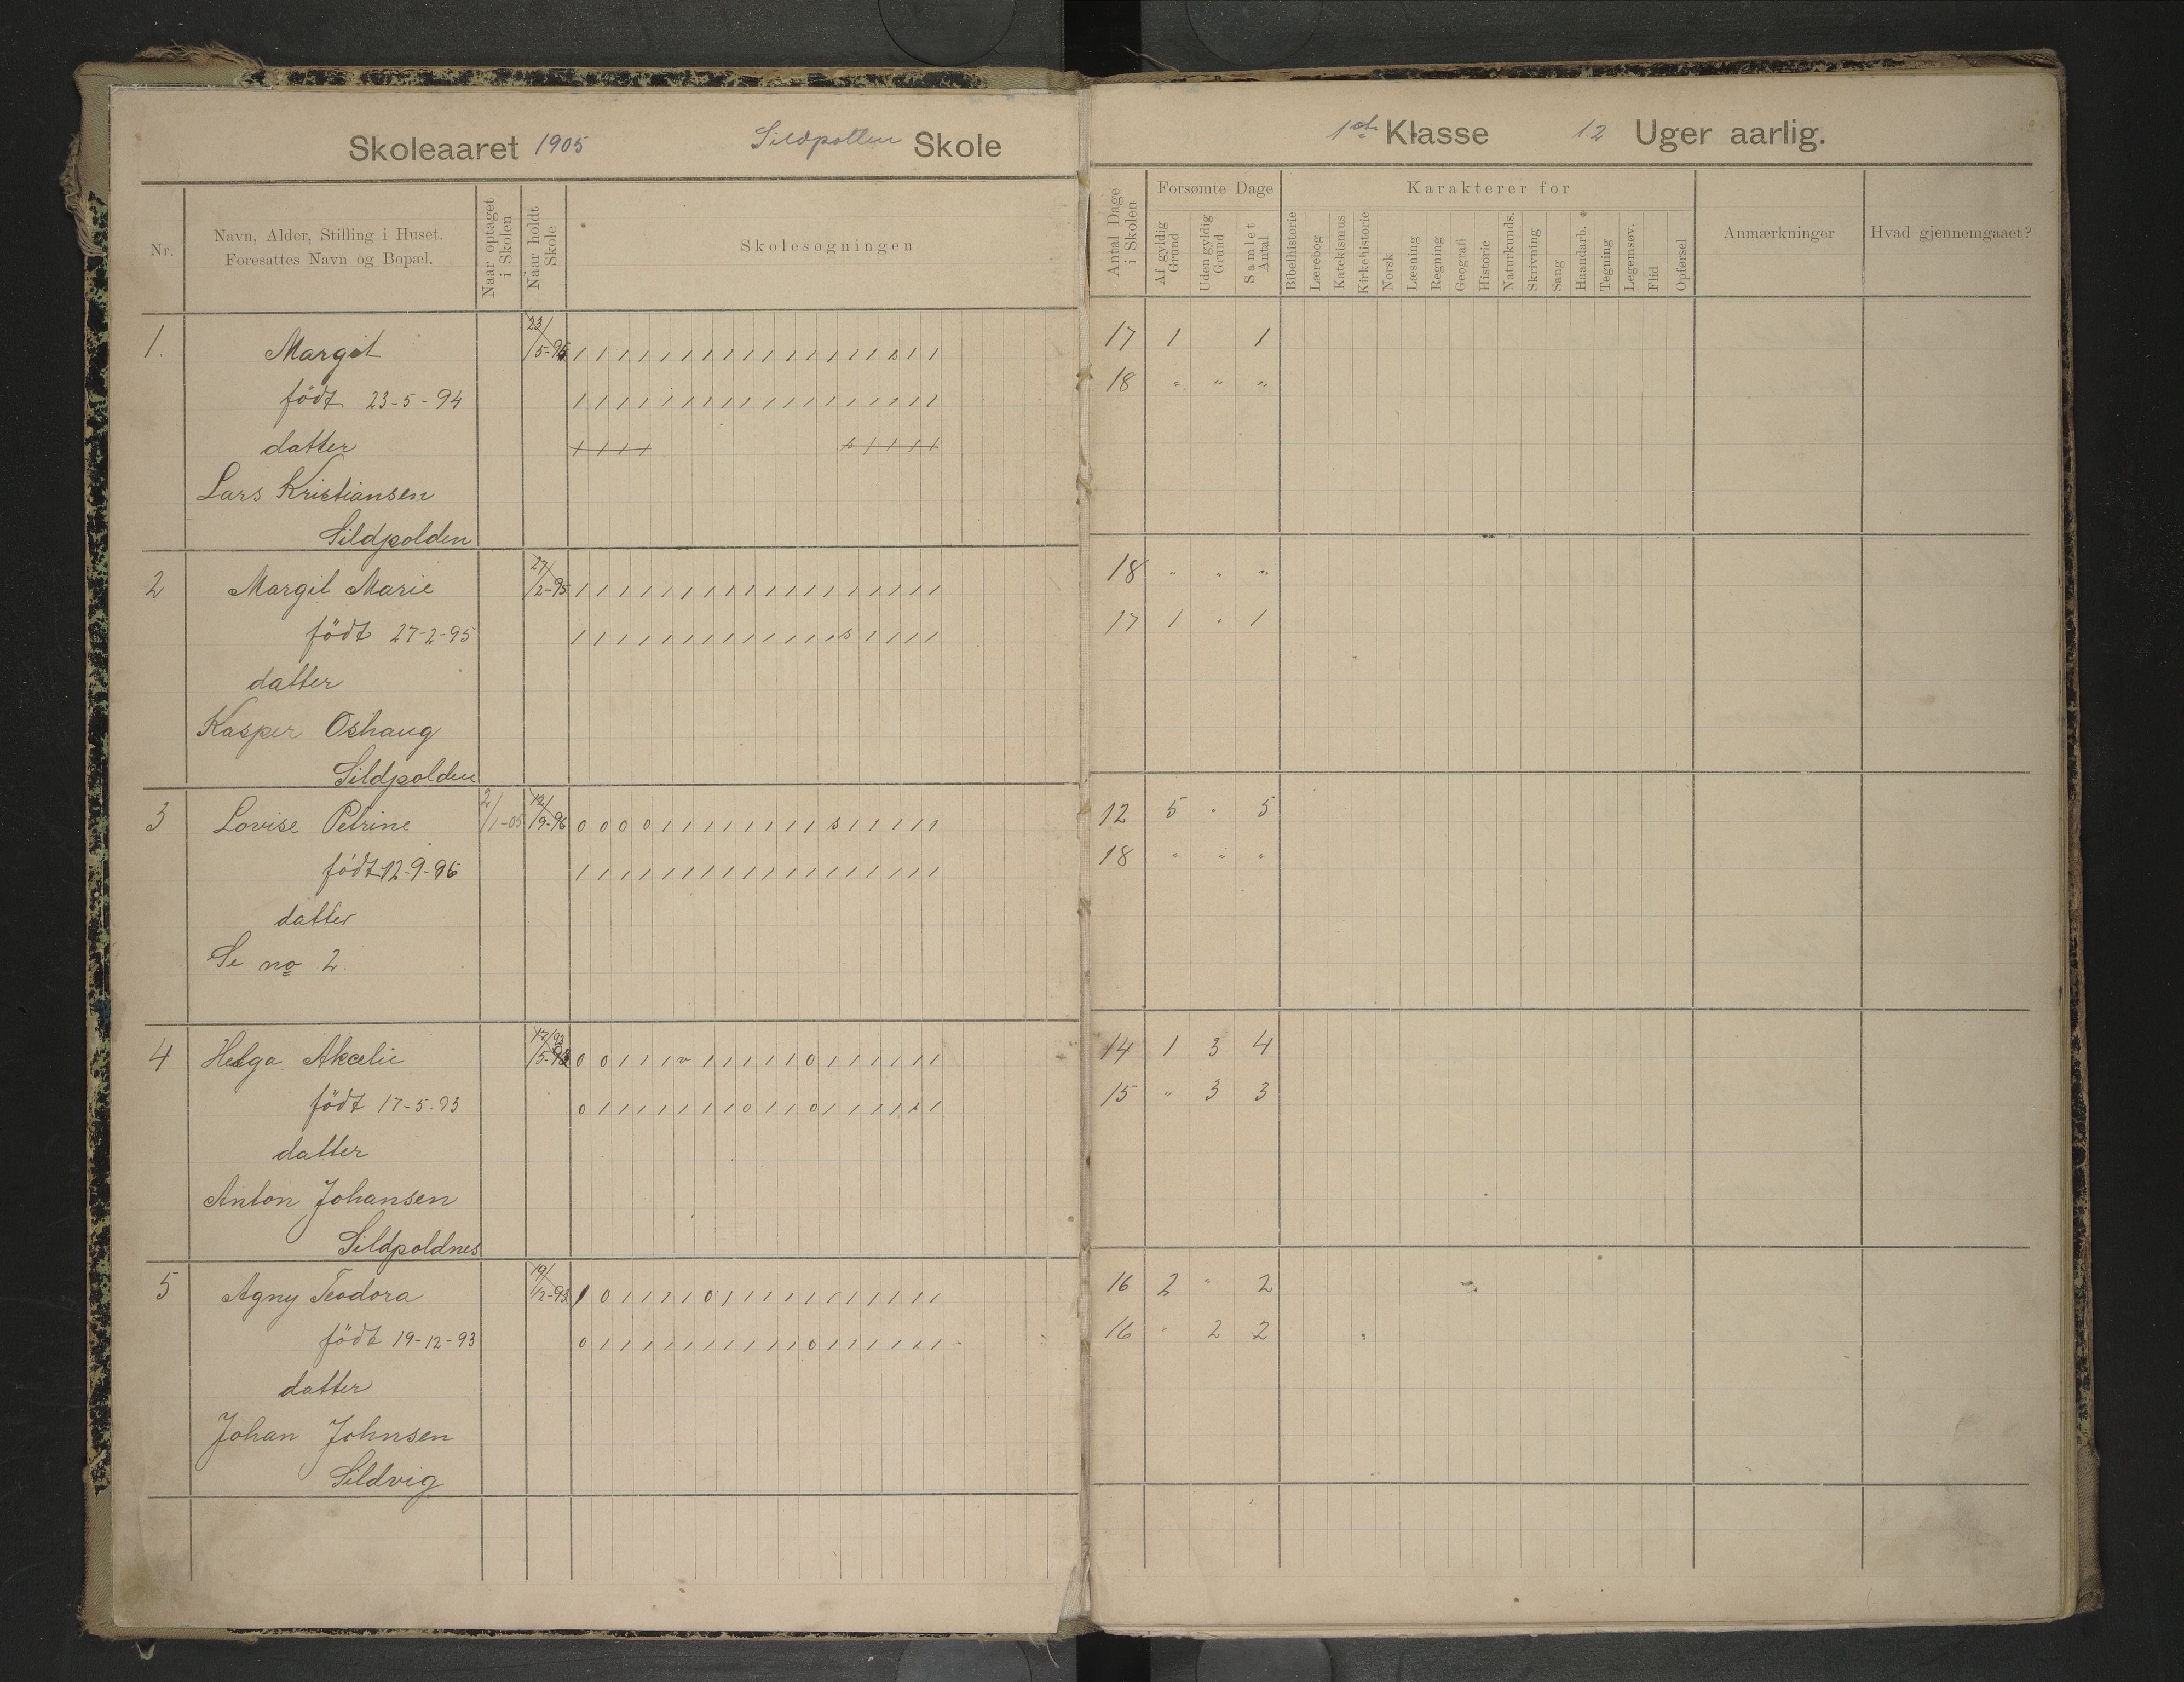 Skoleaaret 1905 Sildpollen Skole
1ste Klasse 12 Uger aarlig.
Nr.
Navn, Alder, Stilling i Huset.
Foresattes Navn og Bopæl.
Naar optaget i Skolen
Naar holdt Skole
Skolesøgningen
Antal Dage i Skolen
Forsømte Dage
Af gyldig Grund
Uden gyldig Grund
Samlet Antal
Karakterer for
Bibelhistorie
Lærebog
Katekismus
Kirkehistorie
Norsk
Læsning
Regning
Geografi
Historie
Naturkunds.
Skrivning
Sang
Haandarb.
Tegning
Legemsøv.
Flid
Opførsel
Anmærkninger
Hvad gjennemgaaet?
1. Margit 23/5-94 1 1 1 1 1 1 1 1 1 1 1 1 1 1 1 s 1 1 17 1 1
født 23-5-94 1 1 1 1 1 1 1 1 1 1 1 1 1 1 1 1 1 1 18 " " "
datter 1 1 1 1 s 1 1 1 1
Lars Kristiansen
Sildpolden
2 Margit Marie 27/2-95 1 1 1 1 1 1 1 1 1 1 1 1 1 1 1 1 1 1 18 " " "
født 27-2-95 1 1 1 1 1 1 1 1 1 1 1 1 1 s 1 1 1 1 17 1 " 1
datter
Kasper Oshaug
Sildpolden
3 Lovise Petrine 2/1-05 12/9-96 0 0 0 0 1 1 1 1 1 1 1 1 s 1 1 1 1 1 12 5 " 5
født 12-9-96 1 1 1 1 1 1 1 1 1 1 1 1 1 1 1 1 1 1 18 " " "
datter
Se no 2.
4 Helga Akselie 17/5-93 0 0 1 1 1 v 1 1 1 1 1 0 1 1 1 1 1 1 14 1 3 4
født 17-5-93 0 1 1 1 1 1 1 1 0 1 1 0 1 1 1 1 1 1 15 " 3 3
datter
Anton Johansen
Sildpoldnes
5 Agny Teodora 19/12-93 1 0 1 1 1 1 0 1 1 1 1 1 1 1 1 1 1 1 16 2 " 2
født 19-12-93 0 1 1 1 1 1 1 1 1 1 1 0 1 1 1 1 1 1 16 " 2 2
datter
Johan Johnsen
Sildvig